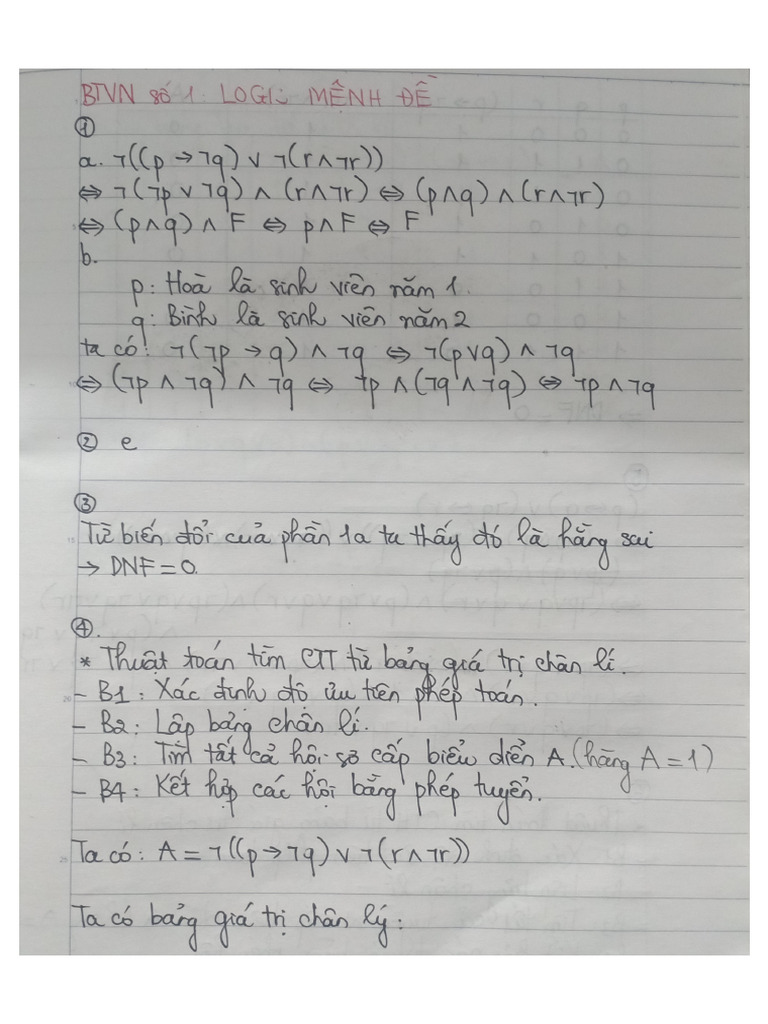 BTVN số 1: LOGIC MỆNH ĐỀ
①
a. ¬((p → ¬q) ∨ ¬(r ∧ ¬r))
⇔ ¬(¬p ∨ ¬q) ∧ (r ∧ ¬r) ⇔ (p ∧ q) ∧ (r ∧ ¬r)
⇔ (p ∧ q) ∧ F ⇔ p ∧ F ⇔ F
b.
p: Hoà là sinh viên năm 1.
q: Bình là sinh viên năm 2
ta có: ¬(¬p → q) ∧ ¬q ⇔ ¬(p ∨ q) ∧ ¬q
⇔ (¬p ∧ ¬q) ∧ ¬q ⇔ ¬p ∧ (¬q ∧ ¬q) ⇔ ¬p ∧ ¬q
② e
③
Từ biến đổi của phần 1a ta thấy đó là hằng sai
→ DNF = 0.
④.
* Thuật toán tìm CTT từ bảng giá trị chân lí.
- B1: Xác định độ ưu tiên phép toán.
- B2: Lập bảng chân lí.
- B3: Tìm tất cả hội sơ cấp biểu diễn A. (hàng A = 1)
- B4: Kết hợp các hội bằng phép tuyển.
Ta có: A = ¬((p → ¬q) ∨ ¬(r ∧ ¬r))
Ta có bảng giá trị chân lý: